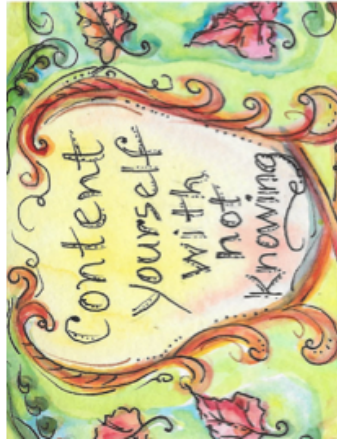 Content
yourself
with
not
Knowing